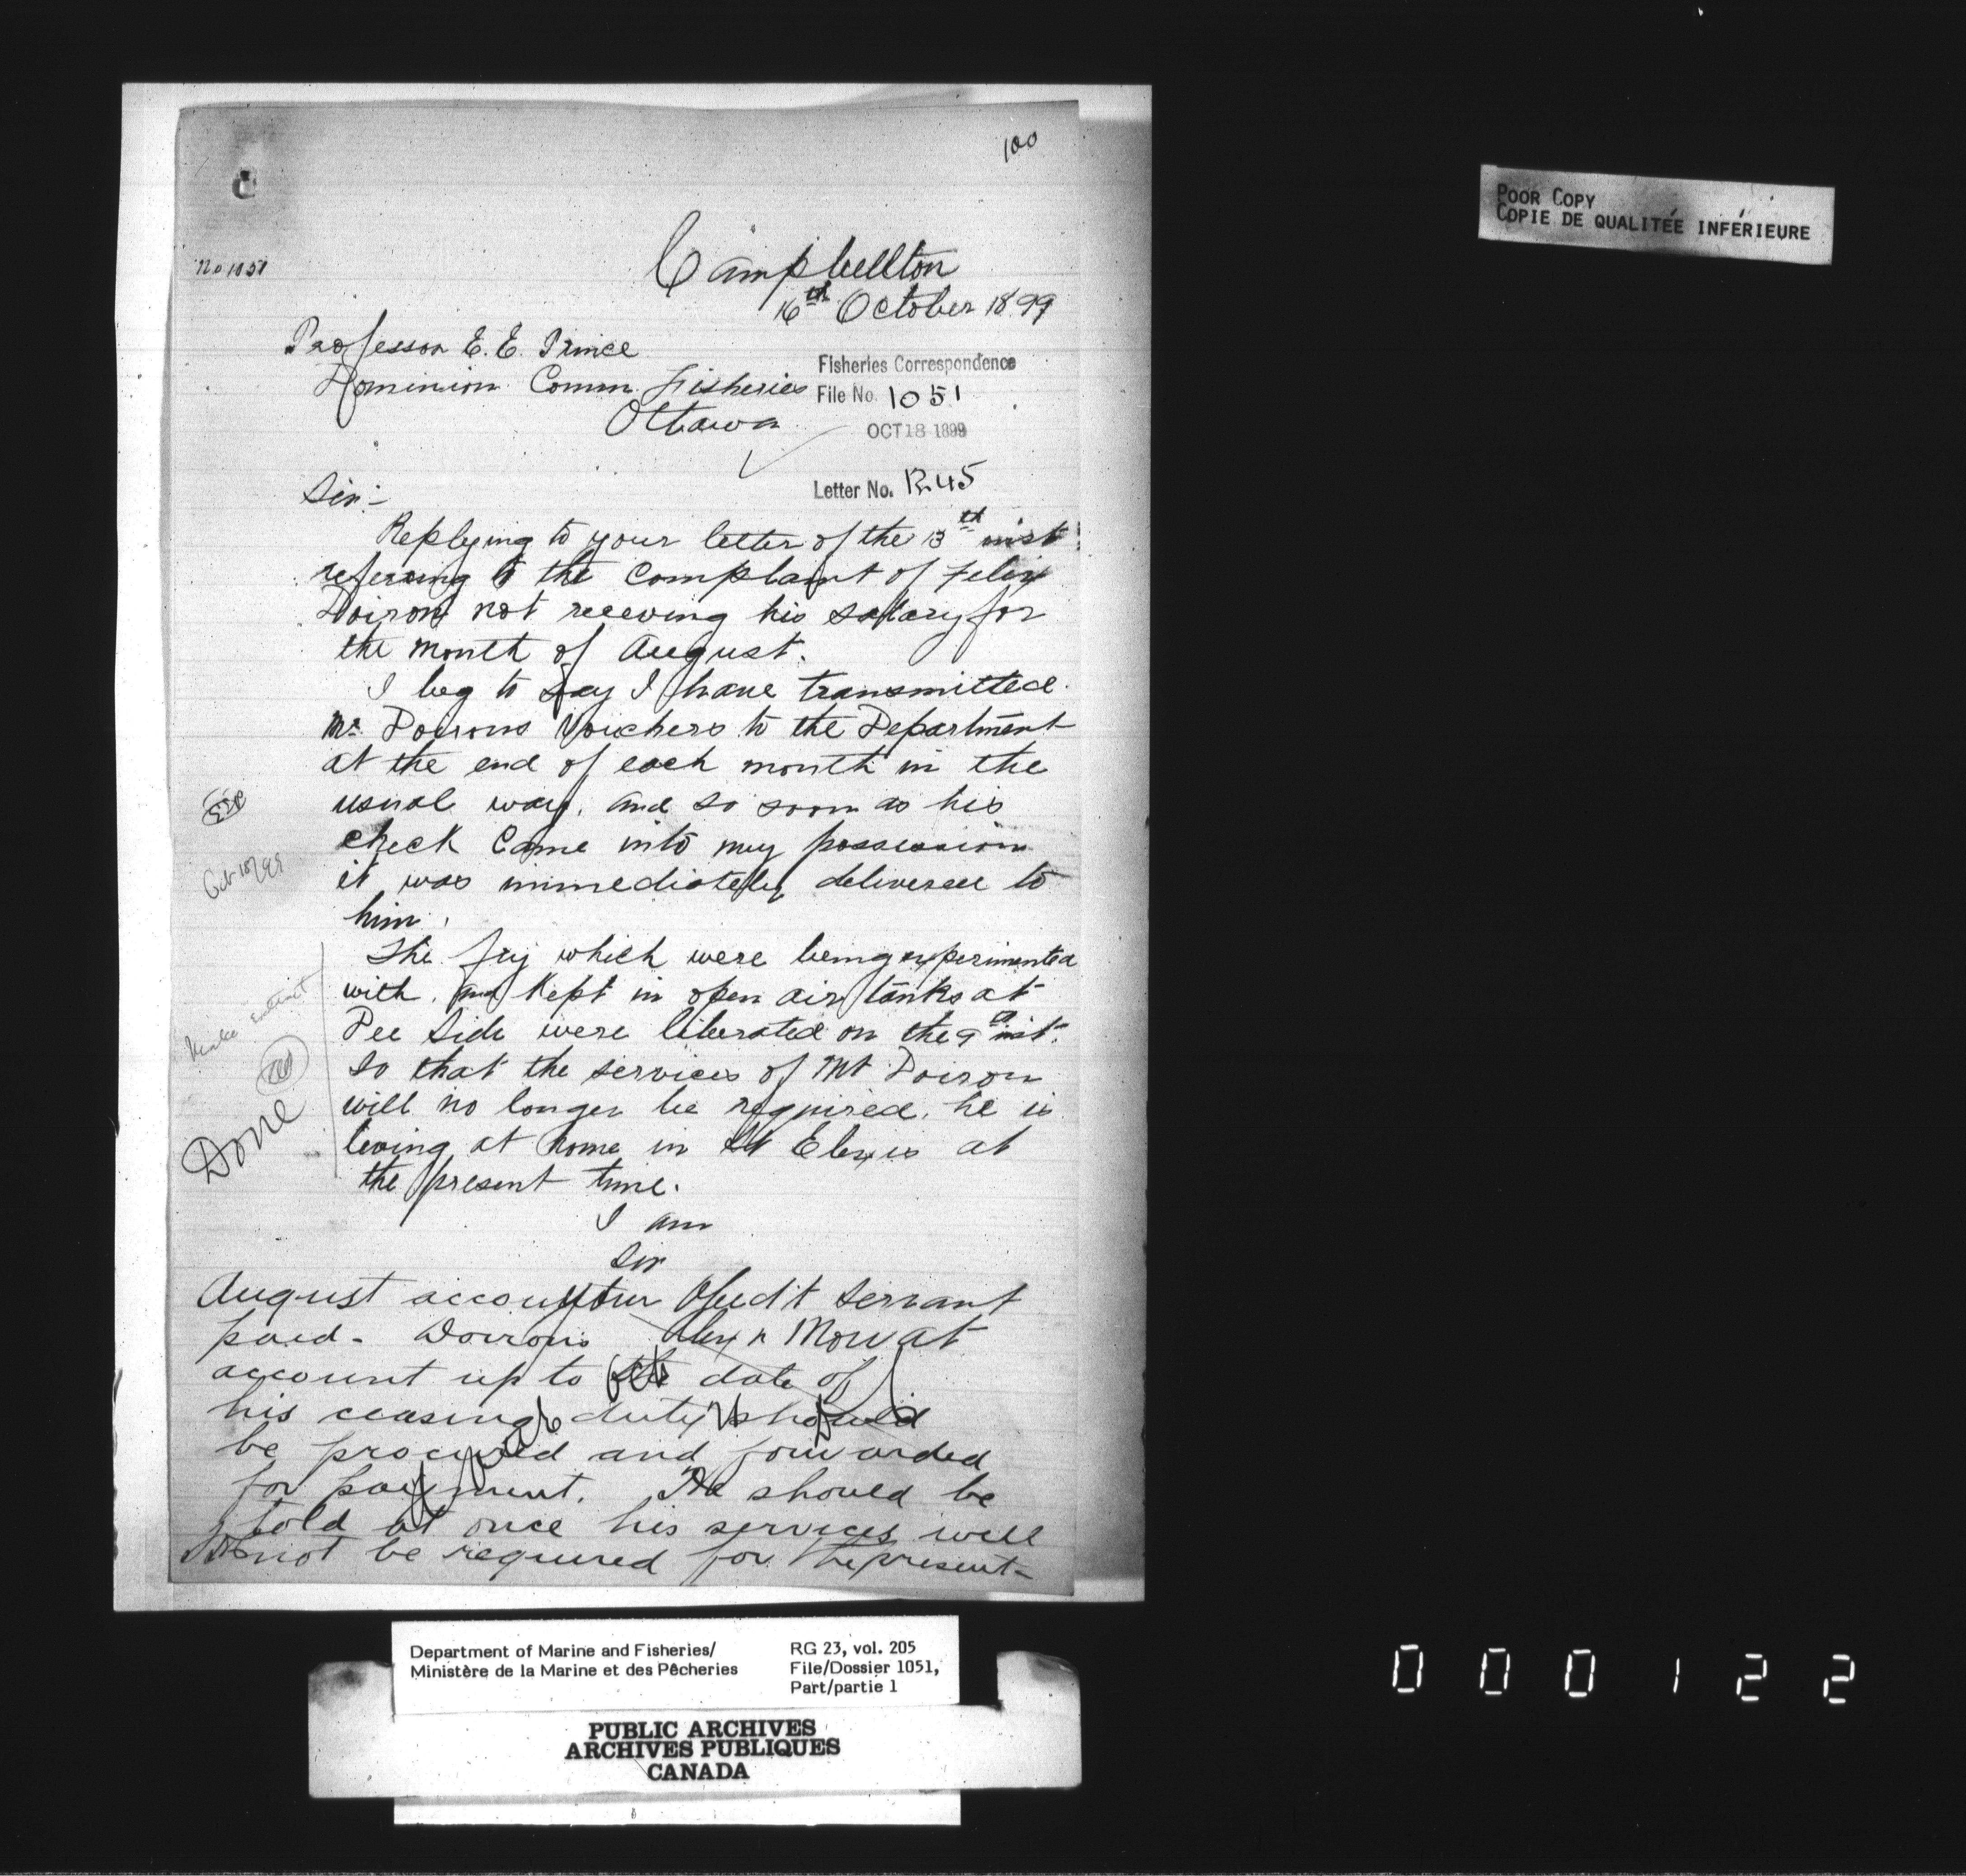 100
No 1051
Campbellton
16th October 1899
Professor E. E. Prince
Dominion Comm. Fisheries
Ottawa
Fisheries Correspondence
File No. 1051
OCT 18 1899
Letter No. R45
Sir:-
Replying to your letter of the 13th inst
referring to the Complaint of Felix
Doiron not receving his salary for
the month of August.
I beg to say I have transmitted
Mr. Doirons Vouchers to the Department
at the end of each month in the
usual way, and so soon as his
check Came into my possession
it was immediately delivered to
him.
The fry which were being experimented
with, and Kept in open air tanks at
Dee Side were liberated on the 9th inst.
So that the services of Mr Doiron
will no longer be required, he is
living at home in St Elexis at
the present time.
I am
Sir
Your Obedit Servant
Alexr Mowat
Oct 18/99
Make extract
Done
August account
paid - Doirons
account up to the date of
his ceasing duty should
be procured and forwarded
for payment. He should be
told at once his services will
not be required for the present-
POOR COPY
COPIE DE QUALITÉE INFÉRIEURE
Department of Marine and Fisheries/
Ministère de la Marine et des Pêcheries
RG 23, vol. 205
File/Dossier 1051,
Part/partie 1
PUBLIC ARCHIVES
ARCHIVES PUBLIQUES
CANADA
000122